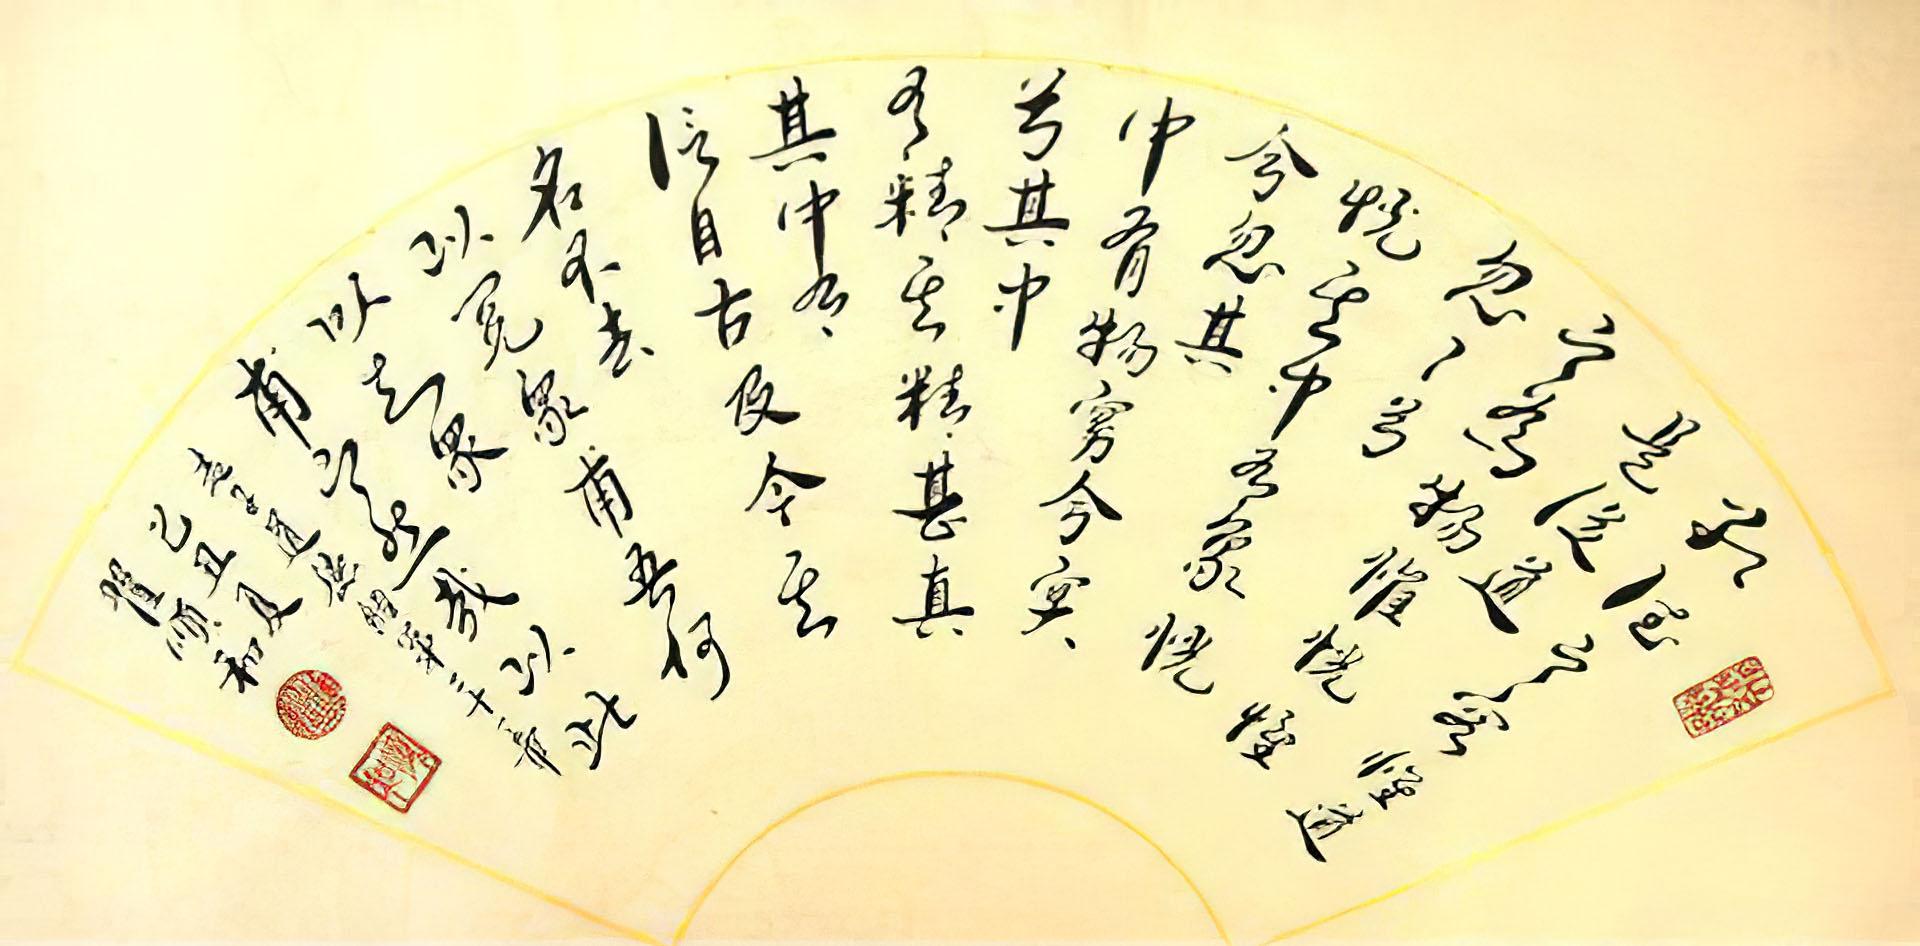 孔德之容惟道
是從道
之為物惟恍惟
忽々兮
恍其中有象恍
兮忽其
中有物窈兮冥
兮其中
有精其精甚真
其中有
信自古及今其
名不去
以閱衆甫吾何
以知衆
甫之然哉以此
老子道德經第二十一章
己丑夏
順和